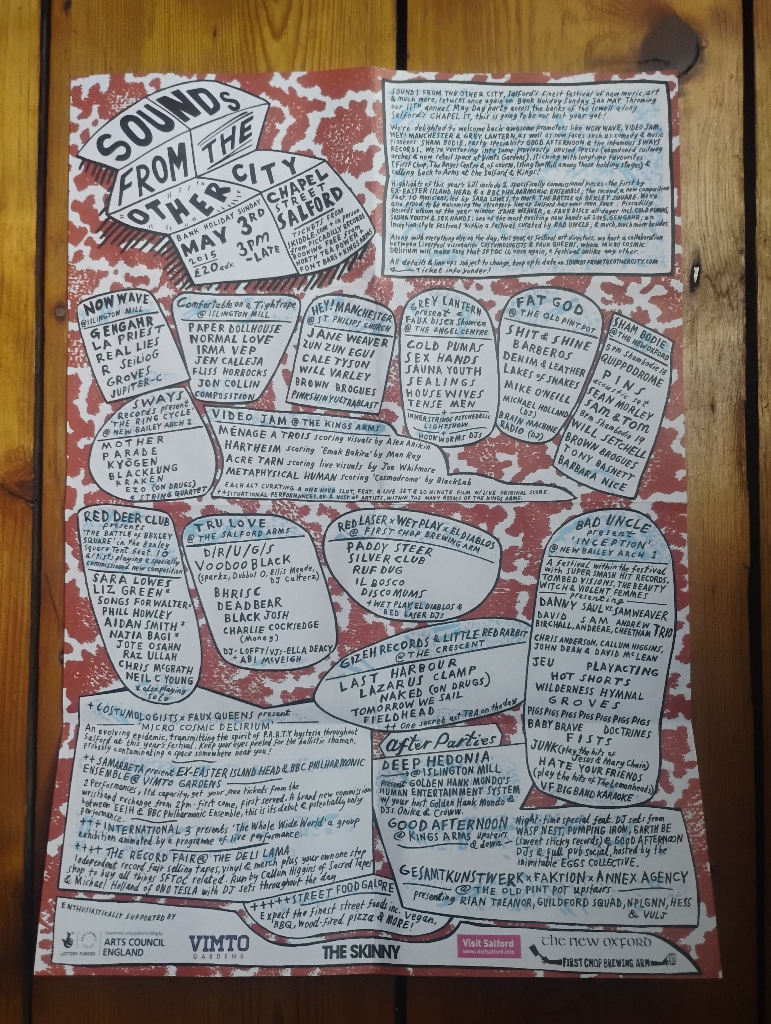 SOUNDS
FROM THE
OTHER CITY
BANK HOLIDAY SUNDAY
MAY 3RD
2015
3PM
LATE
£20 adv.
CHAPEL
STREET
SALFORD
TICKETS FROM
FROM PICCADILLY RECORDS
FONT BARS & KINGS ARMS
SOUNDS FROM THE OTHER CITY, Salford's finest festival of new music, art
& much more, returns once again on Bank Holiday Sunday 3RD MAY. Throwing
our 11TH annual May Day party across the banks of the Irwell along
Salford's CHAPEL ST, this is going to be our best year yet!
We're delighted to welcome back awesome promoters like NOW WAVE, VIDEO JAM,
HEY! MANCHESTER & GREY LANTERN, as well as new faces such as comedy & music
pioneers SHAM BODIE, party specialists GOOD AFTERNOON & the infamous SWAYS
RECORDS. We're venturing into some previously unused spaces (abandoned railway
arches & new retail space at Vimto Gardens), sticking with longtime favourites
(First Chop, The Angel Centre & of course, Islington Mill among those holding stages) &
calling back to Arms at the Salford & Kings!
Highlights of this year's bill include 2 specifically commissioned pieces - the first by
EX-EASTER ISLAND HEAD & BBC PHILHARMONIC ENSEMBLE, the second a new composition
that 10 musicians, led by SARA LOWES, to mark THE BATTLE OF BEXLEY SQUARE. We're
Records album of the year winner JANE WEAVER, a FAUX DISCX all-dayer incl. COLD PUMAS,
SAUNA YOUTH & SEX HANDS; one of the most exciting new bands around, GENGAHR, an
inception style festival within a festival curated by BAD UNCLE, & much, much more besides.
Along with everything else on the day, this year's festival art directors, we hart a collaboration
between Liverpool visionaries COSTUMOLOGISTS & FAUX QUEENS, whose MICRO COSMIC
DELIRIUM will make sure that SFTOC is, once again, a festival unlike any other.
All details & line ups subject to change, keep up to date on SOUNDSFROMTHEOTHERCITY.COM
Ticket info yonder!
NOW WAVE
@ ISLINGTON MILL
GENGAHR
LA PRIEST
REAL LIES
R SEILIOG
GROVES
JUPITER-C
Comfortable on a Tightrope
@ ISLINGTON MILL
PAPER DOLLHOUSE
NORMAL LOVE
IRMA VEP
JEN CALLEJA
FLISS HORROCKS
JON COLLIN
COMPOSITION
HEY! MANCHESTER
@ ST PHILIPS CHURCH
JANE WEAVER
ZUN ZUN EGUI
CALE TYSON
WILL VARLEY
BROWN BROGUES
PINKSHINYULTRABLAST
GREY LANTERN
present a
FAUX DISCX Showcase
@ THE ANGEL CENTRE
COLD PUMAS
SEX HANDS
SAUNA YOUTH
SEALINGS
HOUSEWIVES
TENSE MEN
+
INNERSTRINGS PSYCHEDELIC
LIGHTSHOW
+
HOOKWORMS DJs
FAT GOD
@ THE OLD PINT POT
SHIT & SHINE
BARBEROS
DENIM & LEATHER
LAKES OF SNAKES
MIKE O'NEILL
MICHAEL HOLLAND
(DJ)
BRAIN MACHINE
RADIO (DJ)
SHAM BODIE
@ THE NEW OXFORD
5pm Shambodie 18
QUIPPODROME
PINS
acoustic set
SEAN MORLEY
SAM & TOM
8pm Shambodie 19
WILL SETCHELL
BROWN BROGUES
TONY BASNETT
BARBARA NICE
SWAYS
Records present
'THE RING CYCLE'
@ NEW BAILEY ARCH 2
MOTHER
PARADE
KYOGEN
BLACKLUNG
KRAKEN
EZO (ON DRUGS)
& STRING QUARTET
VIDEO JAM @ THE KINGS ARMS
MÉNAGE À TROIS scoring visuals by Alex Anikin
HARTHEIM scoring 'Emak Bakia' by Man Ray
ACRE TARN scoring live visuals by Joe Whitmore
METAPHYSICAL HUMAN scoring 'Cosmodrome' by BlackLab
EACH ACT CURATING A ONE HOUR SLOT, FEAT. A LIVE SET & 20 MINUTE FILM W/ LIVE ORIGINAL SCORE.
++SITUATIONAL PERFORMANCES, BY A HOST OF ARTISTS, WITHIN THE MANY ROOMS OF THE KINGS ARMS.
RED DEER CLUB
presents
'THE BATTLE OF BEXLEY
SQUARE' in the Bexley
Square Tent feat. 10
artists playing a specially
commissioned new composition
SARA LOWES
LIZ GREEN*
SONGS FOR WALTER*
PHILL HOWLEY
AIDAN SMITH*
NATIA BAGI*
JOTE OSAHN
RAZ ULLAH
CHRIS McGRATH
NEIL C YOUNG
* also playing
SOLO
TRU LOVE
@ THE SALFORD ARMS
D/R/U/G/S
VOODOO BLACK
(Sparkz, Dubbul O, Ellis Meade,
DJ Cutterz)
BHRISC
DEADBEAR
BLACK JOSH
CHARLIE COCKSEDGE
(Money)
DJ-LOFFT/VJS-ELLA DEACY
+ ABI McVEIGH
RED LASER x WET PLAY x EL DIABLOS
@ FIRST CHOP BREWING ARM
PADDY STEER
SILVER CLUB
RUF DUG
IL BOSCO
DISCOMUMS
+ WET PLAY EL DIABLOS &
RED LASER DJs
GIZEH RECORDS & LITTLE RED RABBIT
@ THE CRESCENT
LAST HARBOUR
LAZARUS CLAMP
NAKED (ON DRUGS)
TOMORROW WE SAIL
FIELDHEAD
++ One secret act TBA on the day
BAD UNCLE
present
'INCEPTION'
@ NEW BAILEY ARCH 1
A festival within the festival
with SUPER SMASH HIT RECORDS,
TOMBED VISIONS, THE BEAUTY
WITCH & VIOLENT FEMMES
presenting
DANNY SAUL VS SAMWEAVER
DAVID SAM ANDREW TRIO
BIRCHALL, ANDREAE, CHEETHAM
CHRIS ANDERSON, CALLUM HIGGINS,
JOHN DEAN & DAVID McLEAN
JEU PLAYACTING
HOT SHORTS
WILDERNESS HYMNAL
GROVES
PIGS PIGS PIGS PIGS PIGS PIGS PIGS
BABY BRAVE DOCTRINES
FISTS
JUNK (play the hits of
Jesus & Mary Chain)
HATE YOUR FRIENDS
(play the hits of The Lemonheads)
VF BIG BAND KARAOKE
+ COSTUMOLOGISTS x FAUX QUEENS present
'MICRO COSMIC DELIRIUM'
An evolving epidemic, transmitting the spirit of P.A.R.T.Y hysteria throughout
Salford at this year's festival. Keep your eyes peeled for the ballistic shaman,
probably contaminating a space somewhere near you!
++ SAMARBETA present EX-EASTER ISLAND HEAD & BBC PHILHARMONIC
ENSEMBLE @ VIMTO GARDENS
2 Performances, ltd capacity, get your free tickets from the
wristband exchange from 2pm - first come, first served. A brand new commission
between EEIH & BBC Philharmonic Ensemble, this is its debut & potentially only
performance.
+++ INTERNATIONAL 3 presents 'The Whole Wide World' a group
exhibition animated by a programme of live performance.
++++ THE RECORD FAIR @ THE DELI LAMA
Independent record fair selling tapes, vinyl & merch plus your own one stop
shop to buy all things SFTOC related. Run by Callum Higgins of Sacred Tapes
& Michael Holland of ONO TESLA with DJ sets throughout the day
+++++ STREET FOOD GALORE
Expect the finest street foods inc. Vegan,
BBQ, wood-fired pizza & MORE!
After Parties
DEEP HEDONIA
@ ISLINGTON MILL
present GOLDEN HANK MONDO'S
HUMAN ENTERTAINMENT SYSTEM
w/ your host Golden Hank Mondo &
DJs Onika & Croww.
GOOD AFTERNOON
@ KINGS ARMS upstairs
& down
Night-time special feat. DJ sets from
WASP NEST, PUMPING IRON, EARTH BE
(Sweet sticky records) & GOOD AFTERNOON
DJs & full pub social, hosted by the
inimitable EGGS COLLECTIVE.
GESAMTKUNSTWERK x FAKTION x ANNEX AGENCY
@ THE OLD PINT POT upstairs
presenting RIAN TREANOR, GUILDFORD SQUAD, NPLGNN, HESS
& VULJ
ENTHUSIASTICALLY SUPPORTED BY
LOTTERY FUNDED
Supported using public funding by
ARTS COUNCIL
ENGLAND
VIMTO
GARDENS
THE SKINNY
Visit Salford
www.visitsalford.info
the new oxford
FIRST CHOP BREWING ARM